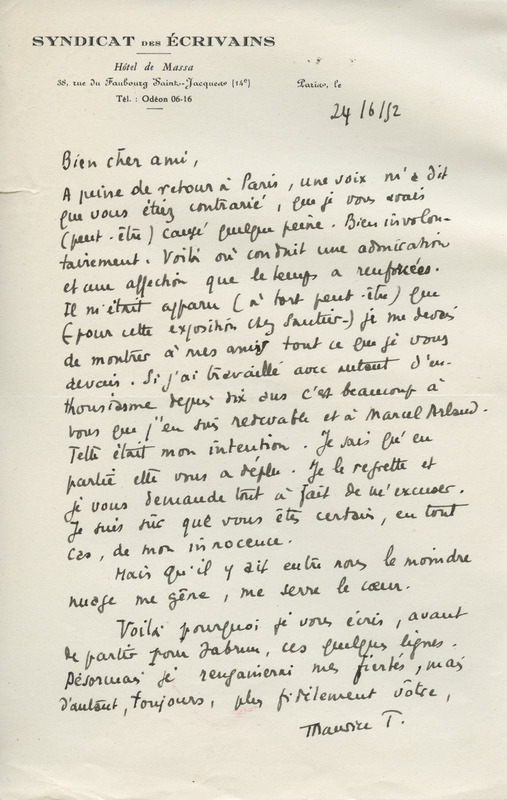 SYNDICAT DES ÉCRIVAINS
Hôtel de Massa
38, rue du Faubourg Saint-Jacques (14e)
Tél. : Odéon 06-16
Paris, le
24/6/52
Bien cher ami,
A peine de retour à Paris, une voix m'a dit
que vous étiez contrarié, que je vous avais
(peut-être) causé quelque peine. Bien involon-
tairement. Voilà où conduit une admiration
et une affection que le temps a renforcées.
Il m'était apparu (à tort peut-être) que
(-pour cette exposition chez -) je me devais
de montrer à mes amis tout ce que je vous
devais. Si j'ai travaillé avec autant d'en-
thousiasme depuis dix ans c'est beaucoup à
vous que j'en suis redevable et à Marcel Arland.
Telle était mon intention. Je sais qu'en
partie elle vous a déplu. Je le regrette et
je vous demande tout à fait de m'excuser.
Je suis sûr que vous êtes certain, en tout
cas, de mon innocence.
Mais qu'il y ait entre nous le moindre
nuage me gêne, me serre le cœur.
Voilà pourquoi je vous écris, avant
de partir pour, ces quelques lignes.
Désormais je rengainerai mes fiertés, mais
d'autant, toujours, plus fidèlement vôtre,
Maurice T.